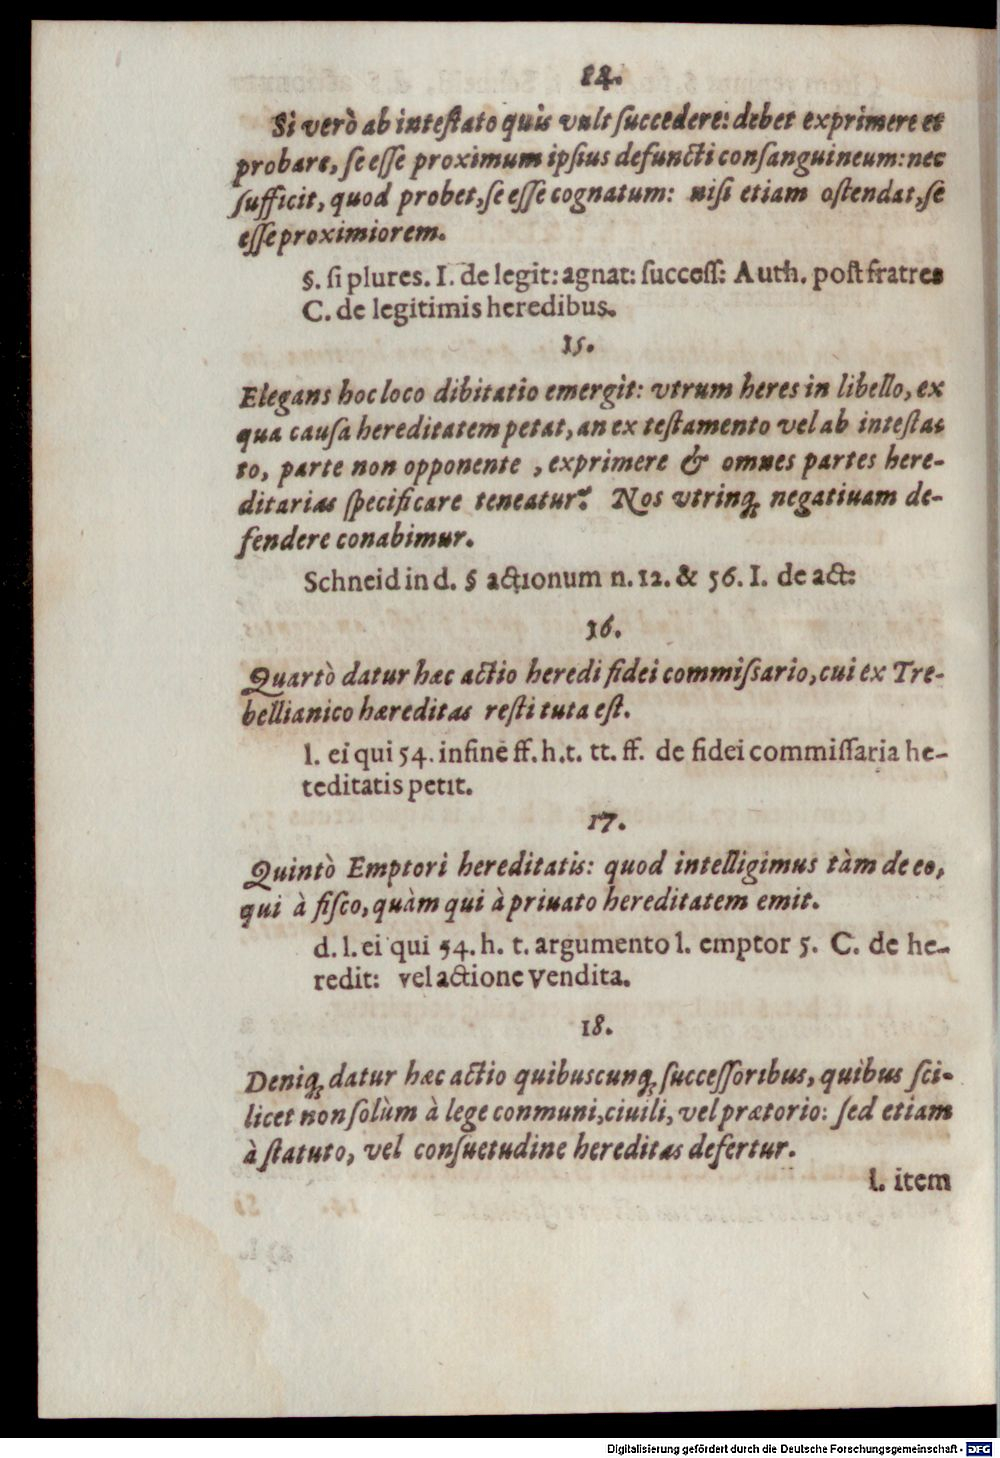 14.
Si verò ab intestato quis vult succedere: debet exprimere et
probare, se esse proximum ipsius defuncti consanguineum: nec
sufficit, quod probet, se esse cognatum: nisi etiam ostendat, se
esse proximiorem.
§. si plures. I. de legit: agnat: success: Auth. post fratres
C. de legitimis heredibus.
15.
Elegans hoc loco dibitatio emergit: vtrum heres in libello, ex
qua causa hereditatem petat, an ex testamento vel ab intesta-
to, parte non opponente, exprimere & omnes partes here-
ditarias specificare teneatur? Nos vtrinq; negatiuam de-
fendere conabimur.
Schneid in d. § actionum n. 12. & 56. I. de act:
16.
Quartò datur hæc actio heredi fidei commissario, cui ex Tre-
bellianico hæreditas restituta est.
l. ei qui 54. in fine ff. h. t. tt. ff. de fidei commissaria he-
teditatis petit.
17.
Quintò Emptori hereditatis: quod intelligimus tàm de eo,
qui à fisco, quàm qui à priuato hereditatem emit.
d. l. ei qui 54. h. t. argumento l. emptor 5. C. de he-
redit: vel actione vendita.
18.
Deniq; datur hæc actio quibuscunq; successoribus, quibus sci-
licet non solùm à lege conmuni, ciuili, vel prætorio: sed etiam
à statuto, vel consuetudine hereditas defertur.
l. item
Digitalisierung gefördert durch die Deutsche Forschungsgemeinschaft - DFG